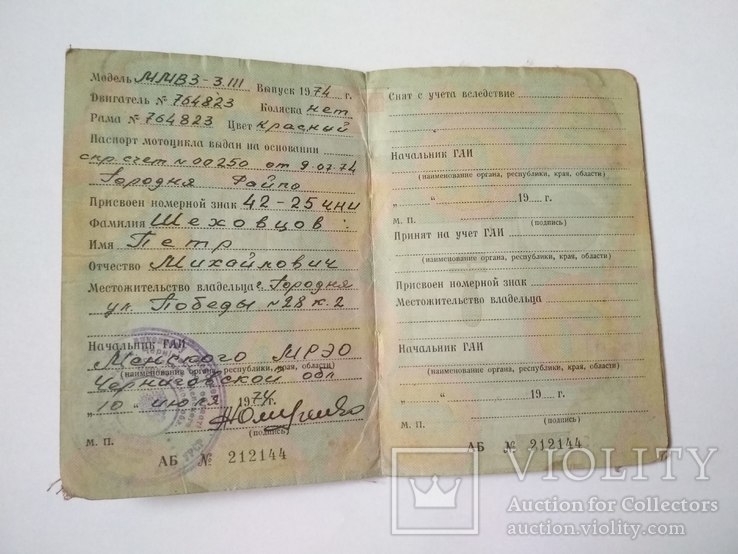 Модель ММВЗ-3.III Выпуск 1974 г.
Двигатель № 764823 Коляска нет
Рама № 764823 Цвет красный
Паспорт мотоцикла выдан на основании
спр. счет N 00250 от 9.07.74
Городня Райпо
Присвоен номерной знак 42-25 ЧНИ
Фамилия Шеховцов
Имя Петр
Отчество Михайлович
Местожительство владельца г. Городня
ул. Победы N 28 к. 2
Начальник ГАИ
Менского МРЭО
(наименование органа, республики, края, области)
Черниговской обл
„ 10 “ июля 1974 г.
(подпись)
М. П.
АБ № 212144
Снят с учета вследствие
Начальник ГАИ
(наименование органа, республики, края, области)
„ “ 19 г.
М. П. (подпись)
Принят на учет ГАИ
(наименование органа, республики, края, области)
Присвоен номерной знак
Местожительство владельца
Начальник ГАИ
(наименование органа, республики, края, области)
„ “ 19 г.
(подпись)
М. П.
АБ № 212144
VIOLITY
Auction for Collectors
auction.violity.com